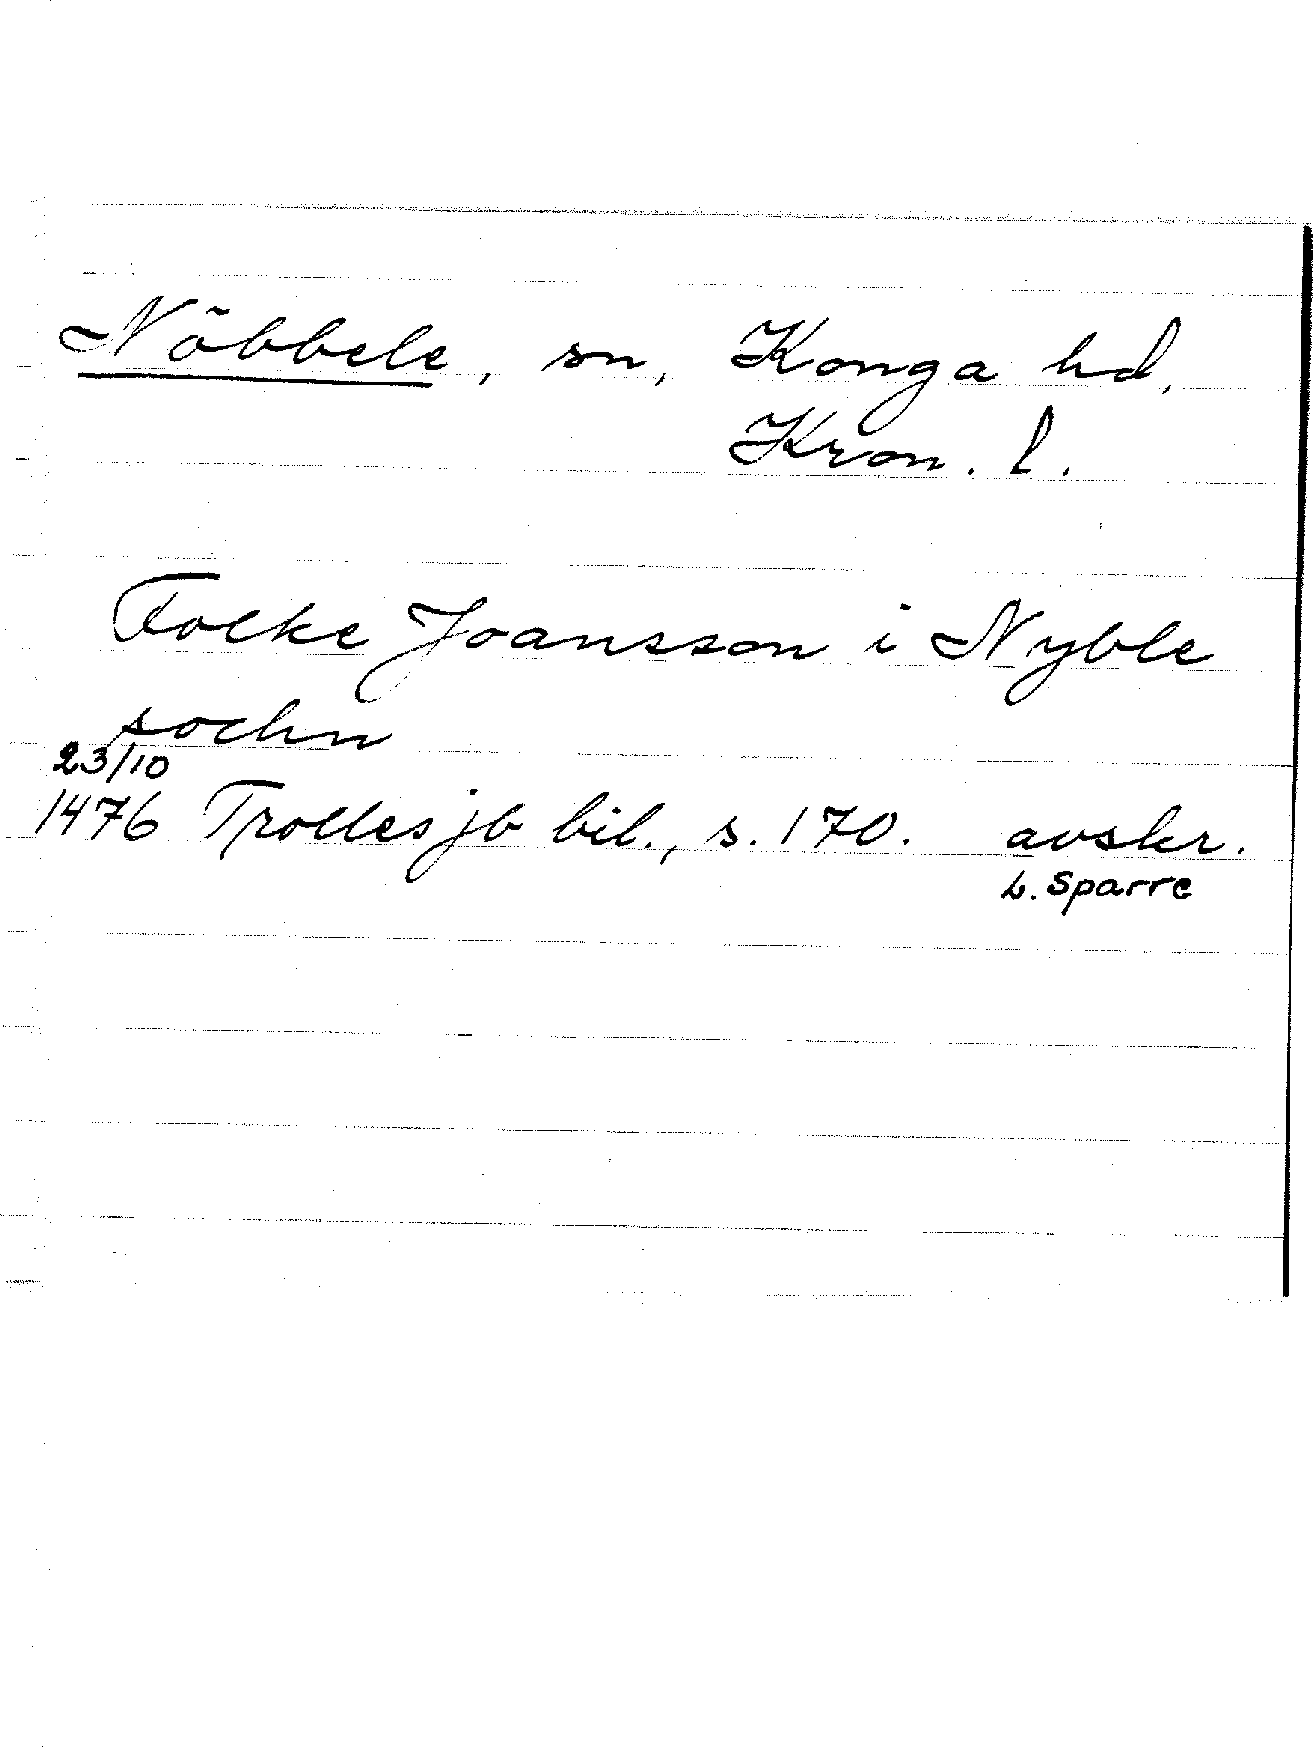 Nöbbele, sn, Konga hd,
Kron. l.
Folke Joansson i Nyble
sochn
23/10
1476 Trolles jb bil., s. 170. avskr.
L. Sparre